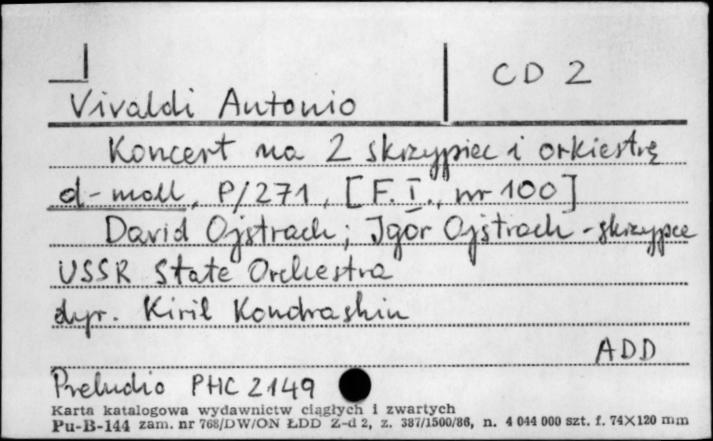 CD 2
Vivaldi Antonio
Koncert na 2 skrzypiec i orkiestrę
d-moll, P/271, [F. I., nr 100]
David Ojstrach; Igor Ojstrach - skrzypce
USSR State Orchestra
dyr. Kiril Kondrashin
ADD
Preludio PHC 2149
Karta katalogowa wydawnictw ciągłych i zwartych
Pu-B-144 zam. nr 768/DW/ON ŁDD Z-d 2, z. 387/1500/86, n. 4 044 000 szt. f. 74×120 mm